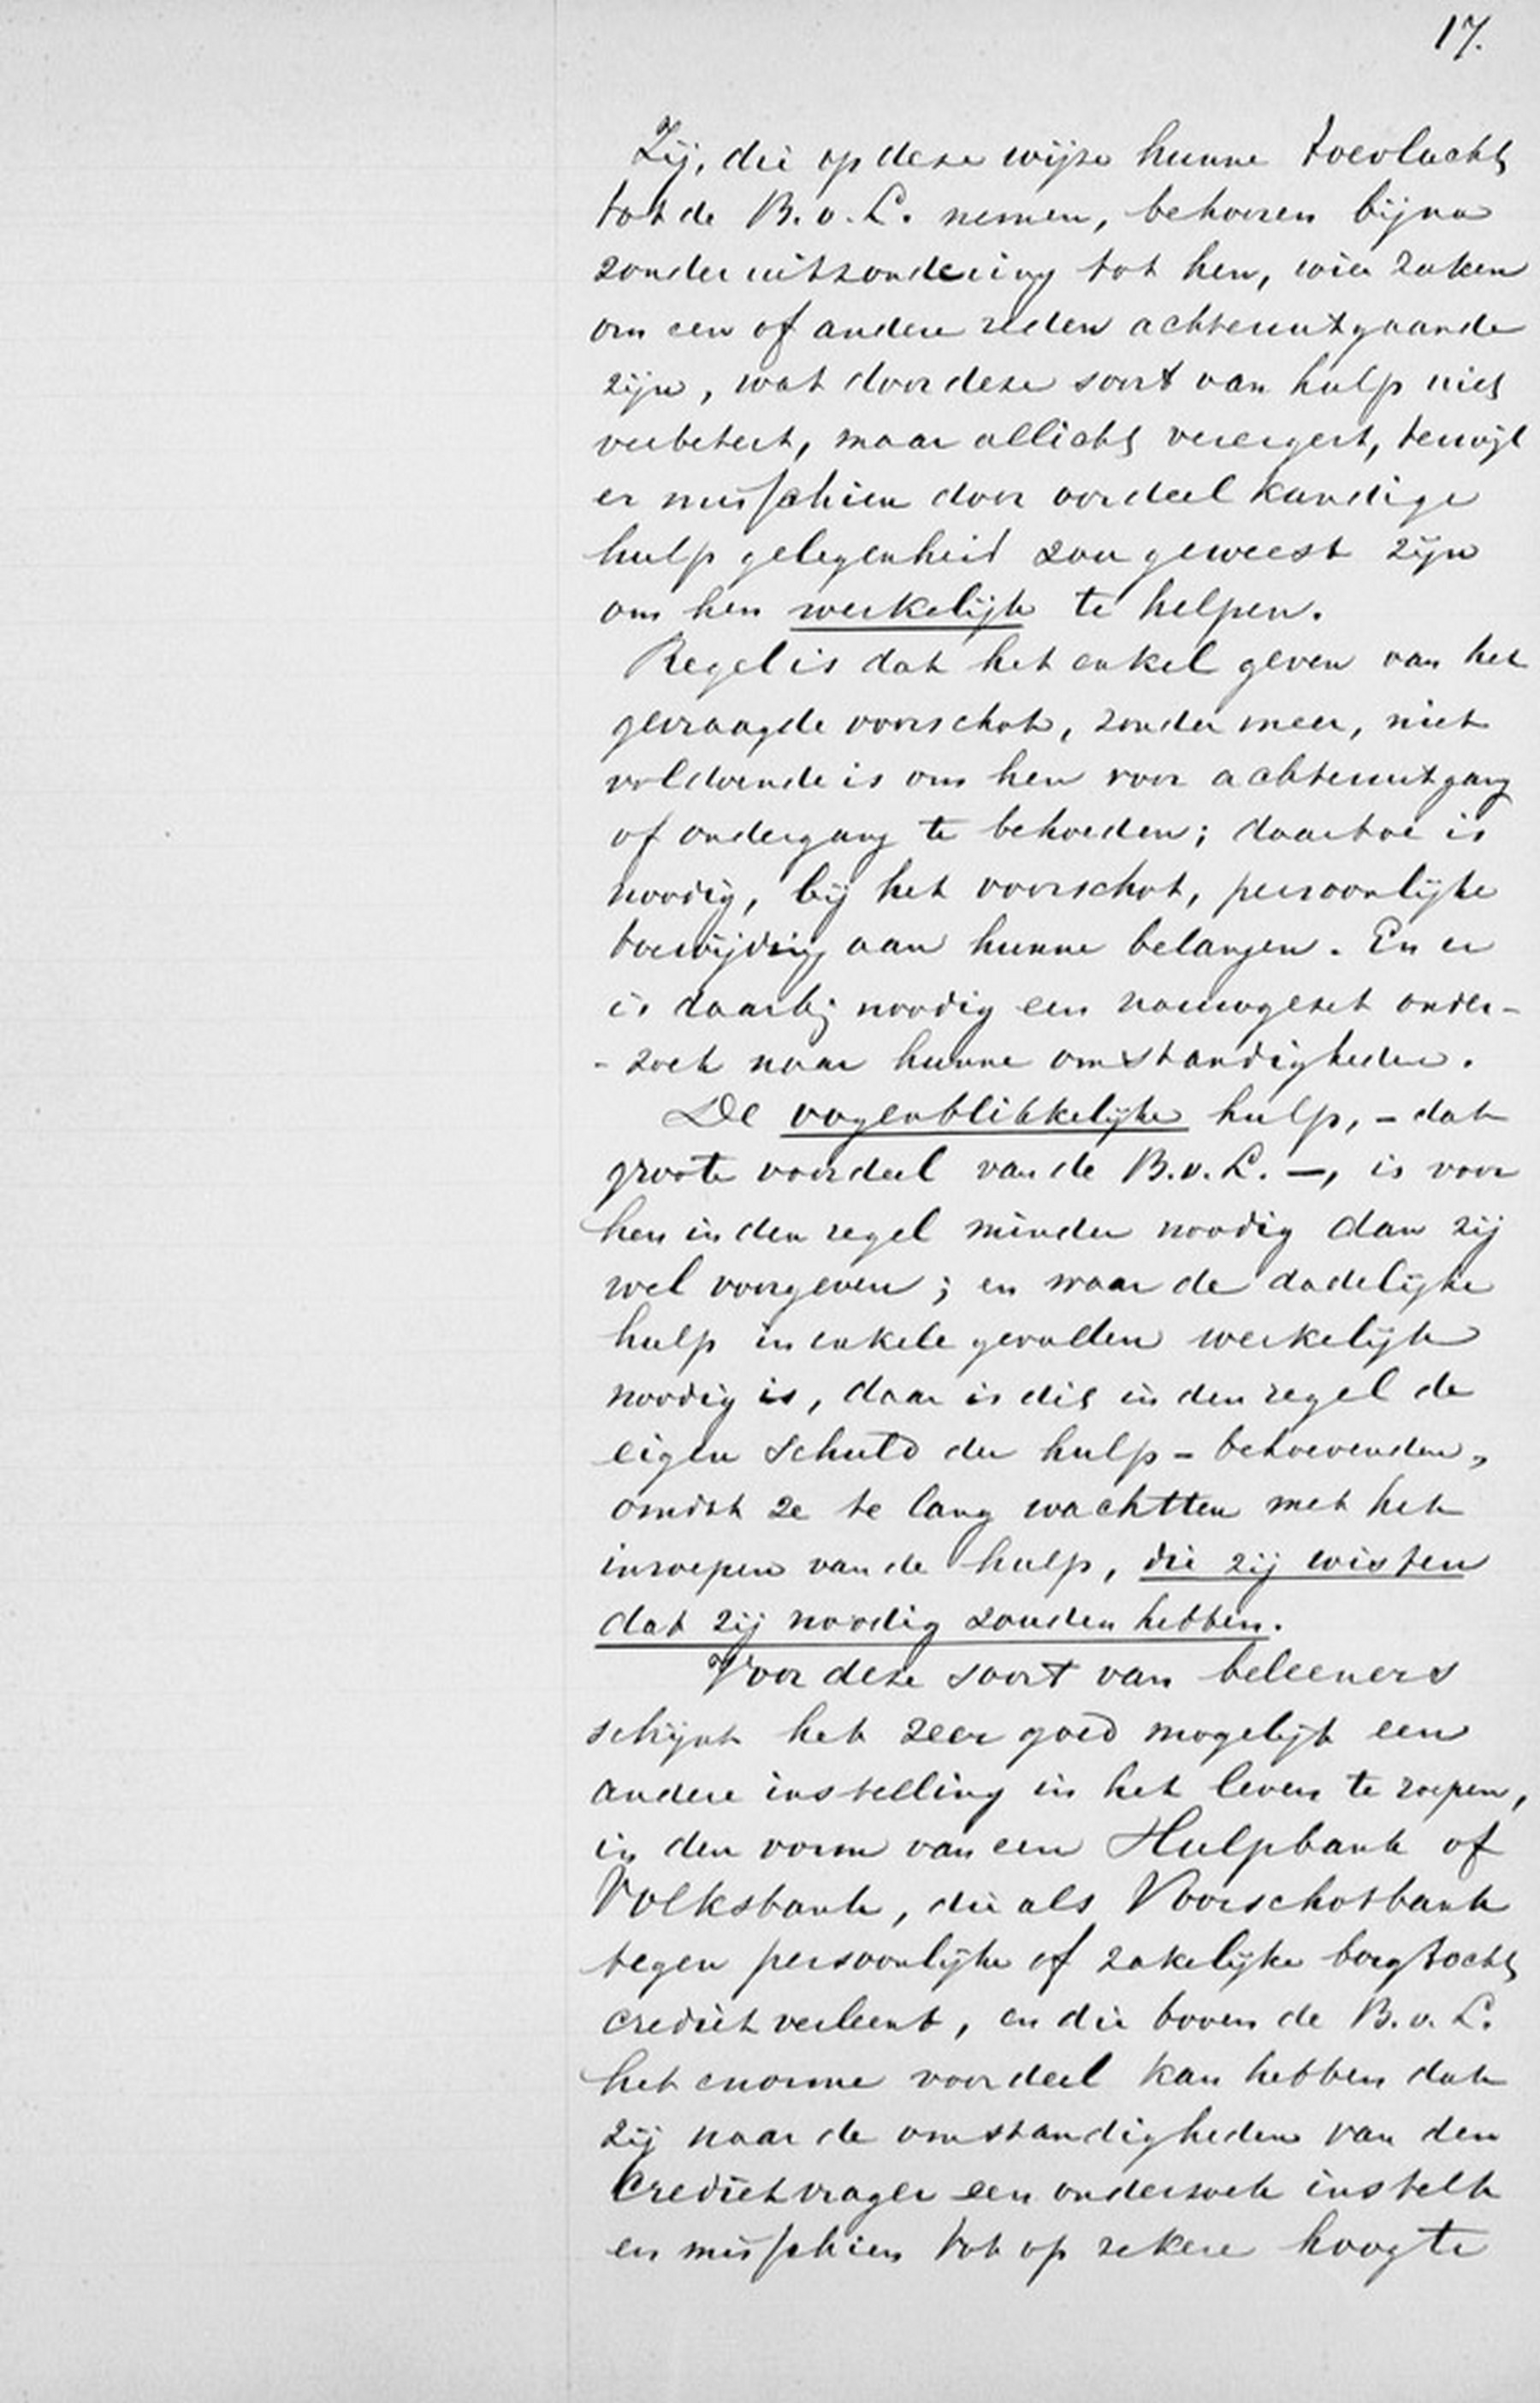 17.
Zij, die op deze wijze hunne toevlucht
tot de B. v. L. nemen, behooren bijna
zonder uitzondering tot hen, wier zaken
om een of andere reden achteruitgaande
zijn, wat door deze soort van hulp niet
verbetert, maar allicht verergert, terwijl
er misschien door oordeelkundige
hulp gelegenheid zou geweest zijn
om hen werkelijk te helpen.
Regel is dat het enkel geven van het
gevraagde voorschot, zonder meer, niet
voldoende is om hen voor achteruitgang
of ondergang te behoeden; daartoe is
noodig, bij het voorschot, persoonlijke
toewijding aan hunne belangen. En er
is daarbij noodig een nauwgezet onder-
- zoek naar hunne omstandigheden.
De oogenblikkelijke hulp, - dat
groote voordeel van de B. v. L. —, is voor
hen in den regel minder noodig dan zij
wel voorgeven; en waar de dadelijke
hulp in enkele gevallen werkelijk
noodig is, daar is dit in den regel de
eigen schuld der hulp-behoevenden,
omdat ze te lang wachtten met het
inroepen van de hulp, die zij wisten
dat zij noodig zouden hebben.
Voor deze soort van beleeners
schijnt het zeer goed mogelijk een
andere instelling in het leven te roepen,
in den vorm van een Hulpbank of
Volksbank, die als Voorschotbank
tegen persoonlijke of zakelijke borgtocht
crediet verleent, en die boven de B. v. L.
het enorme voordeel kan hebben dat
zij naar de omstandigheden van den
credietvrager een onderzoek instelt
en misschien tot op zekere hoogte